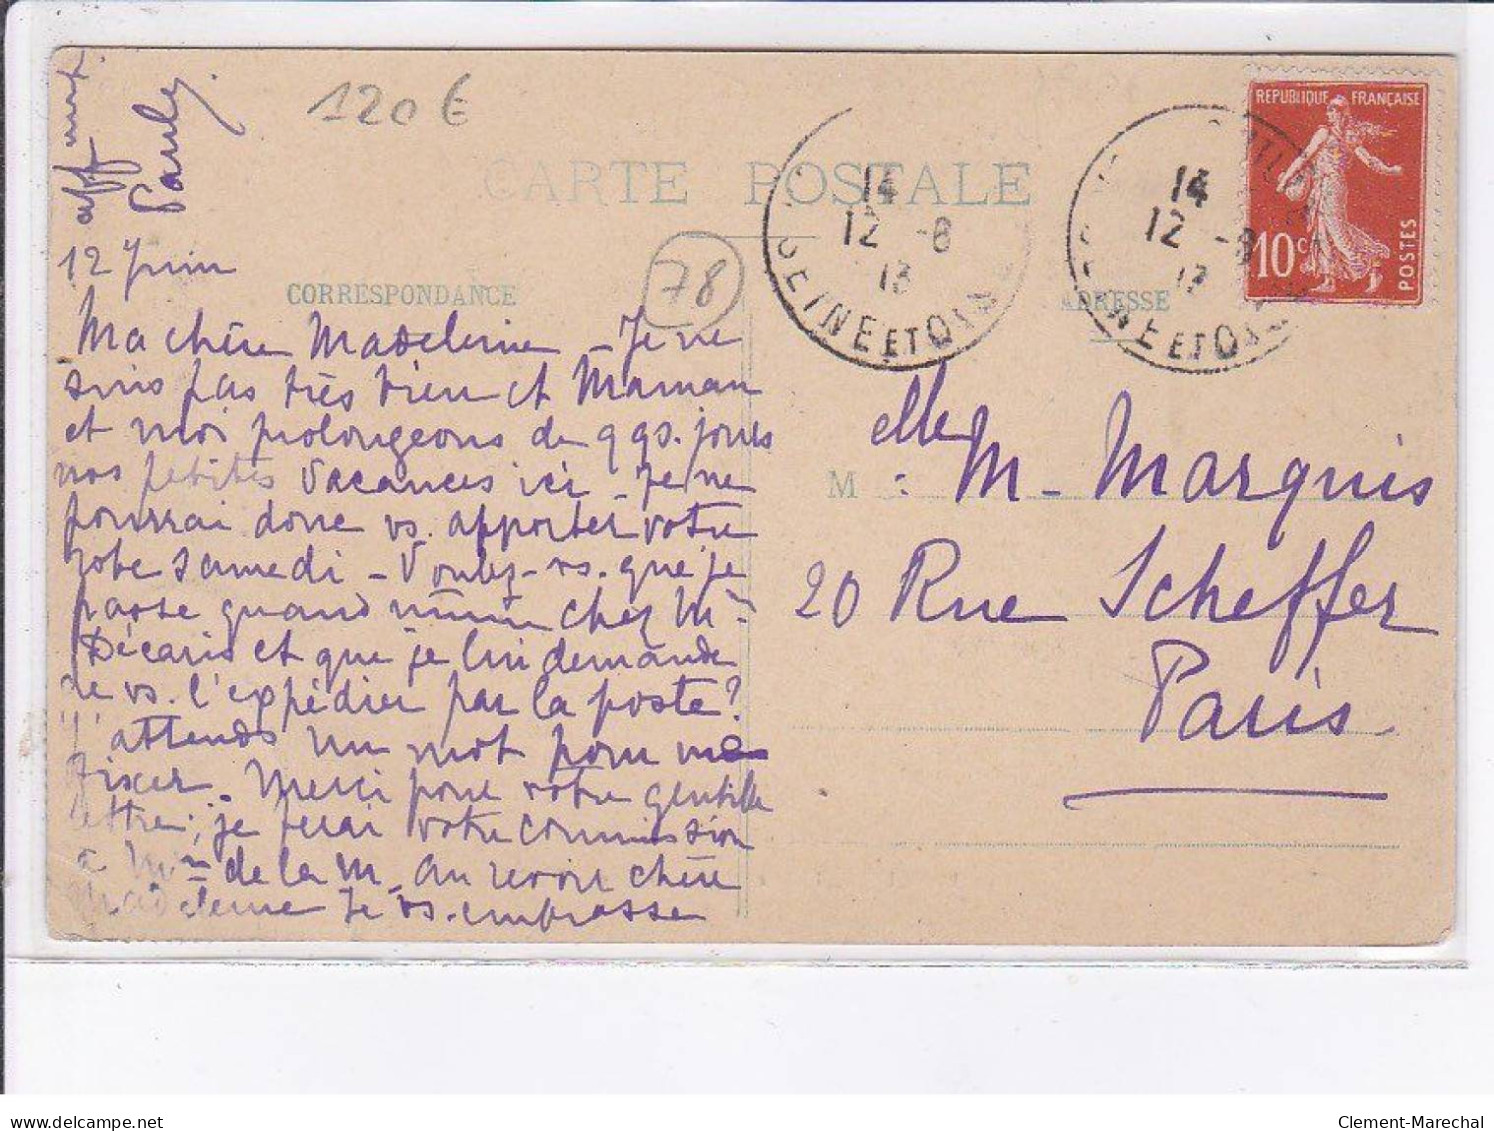 120 €
CARTE POSTALE
RÉPUBLIQUE FRANÇAISE
10c
POSTES
14
12 -6
13
SEINE ET OISE
14
12 -6
13
NE ET OISE
78
CORRESPONDANCE
ADRESSE
12 Juin
Ma chère Madeleine - Je ne
suis pas très bien et Maman
et moi prolongeons de qqs. jours
nos petites vacances ici - Je ne
pourrai donc vs. apporter votre
robe samedi - Voulez-vs. que je
passe quand même chez Mme
Décaris et que je lui demande
de vs. l'expédier par la poste?
J'attends un mot pour me
fixer. Merci pour votre gentille
lettre; je ferai votre commission
à Mme de la M. Au revoir chère
Madeleine Je vs. embrasse
aff
Pauley.
M : elle M - Marquis
20 Rue Scheffer
Paris
www.delcampe.net
Clement-Marechal